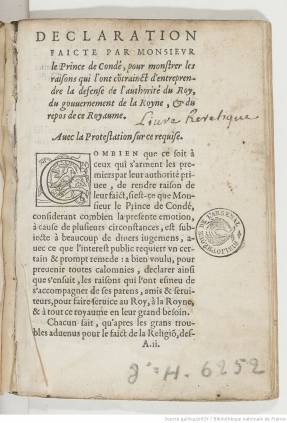 DECLARATION
FAICTE PAR MONSIEVR
le Prince de Condé, pour monstrer les
raisons qui l'ont cōtrainct d'entrepren-
dre la defense de l'authorité du Roy,
du gouuernement de la Royne, & du
repos de ce Royaume.
Liure heretique
Auec la Protestation sur ce requise.
COMBIEN que ce soit à
ceux qui s'arment les pre-
miers par leur authorité pri-
uee, de rendre raison de
leur faict, si est-ce que Mon-
sieur le Prince de Condé,
considerant combien la presente emotion,
à cause de plusieurs circonstances, est sub-
iecte à beaucoup de diuers iugemens, a-
uec ce que l'interest public requiert vn cer-
tain & prompt remede: a bien voulu, pour
preuenir toutes calomnies, declarer ainsi
que s'ensuit, les raisons qui l'ont esmeu de
s'accompagner de ses parens, amis & serui-
teurs, pour faire seruice au Roy, à la Royne,
& à tout ce royaume en leur grand besoin.
Chacun sait, qu'apres les grans trou-
bles aduenus pour le faict de la Religiō, des-
A.ii.
H. 6252
Source gallica.bnf.fr / Bibliothèque nationale de France